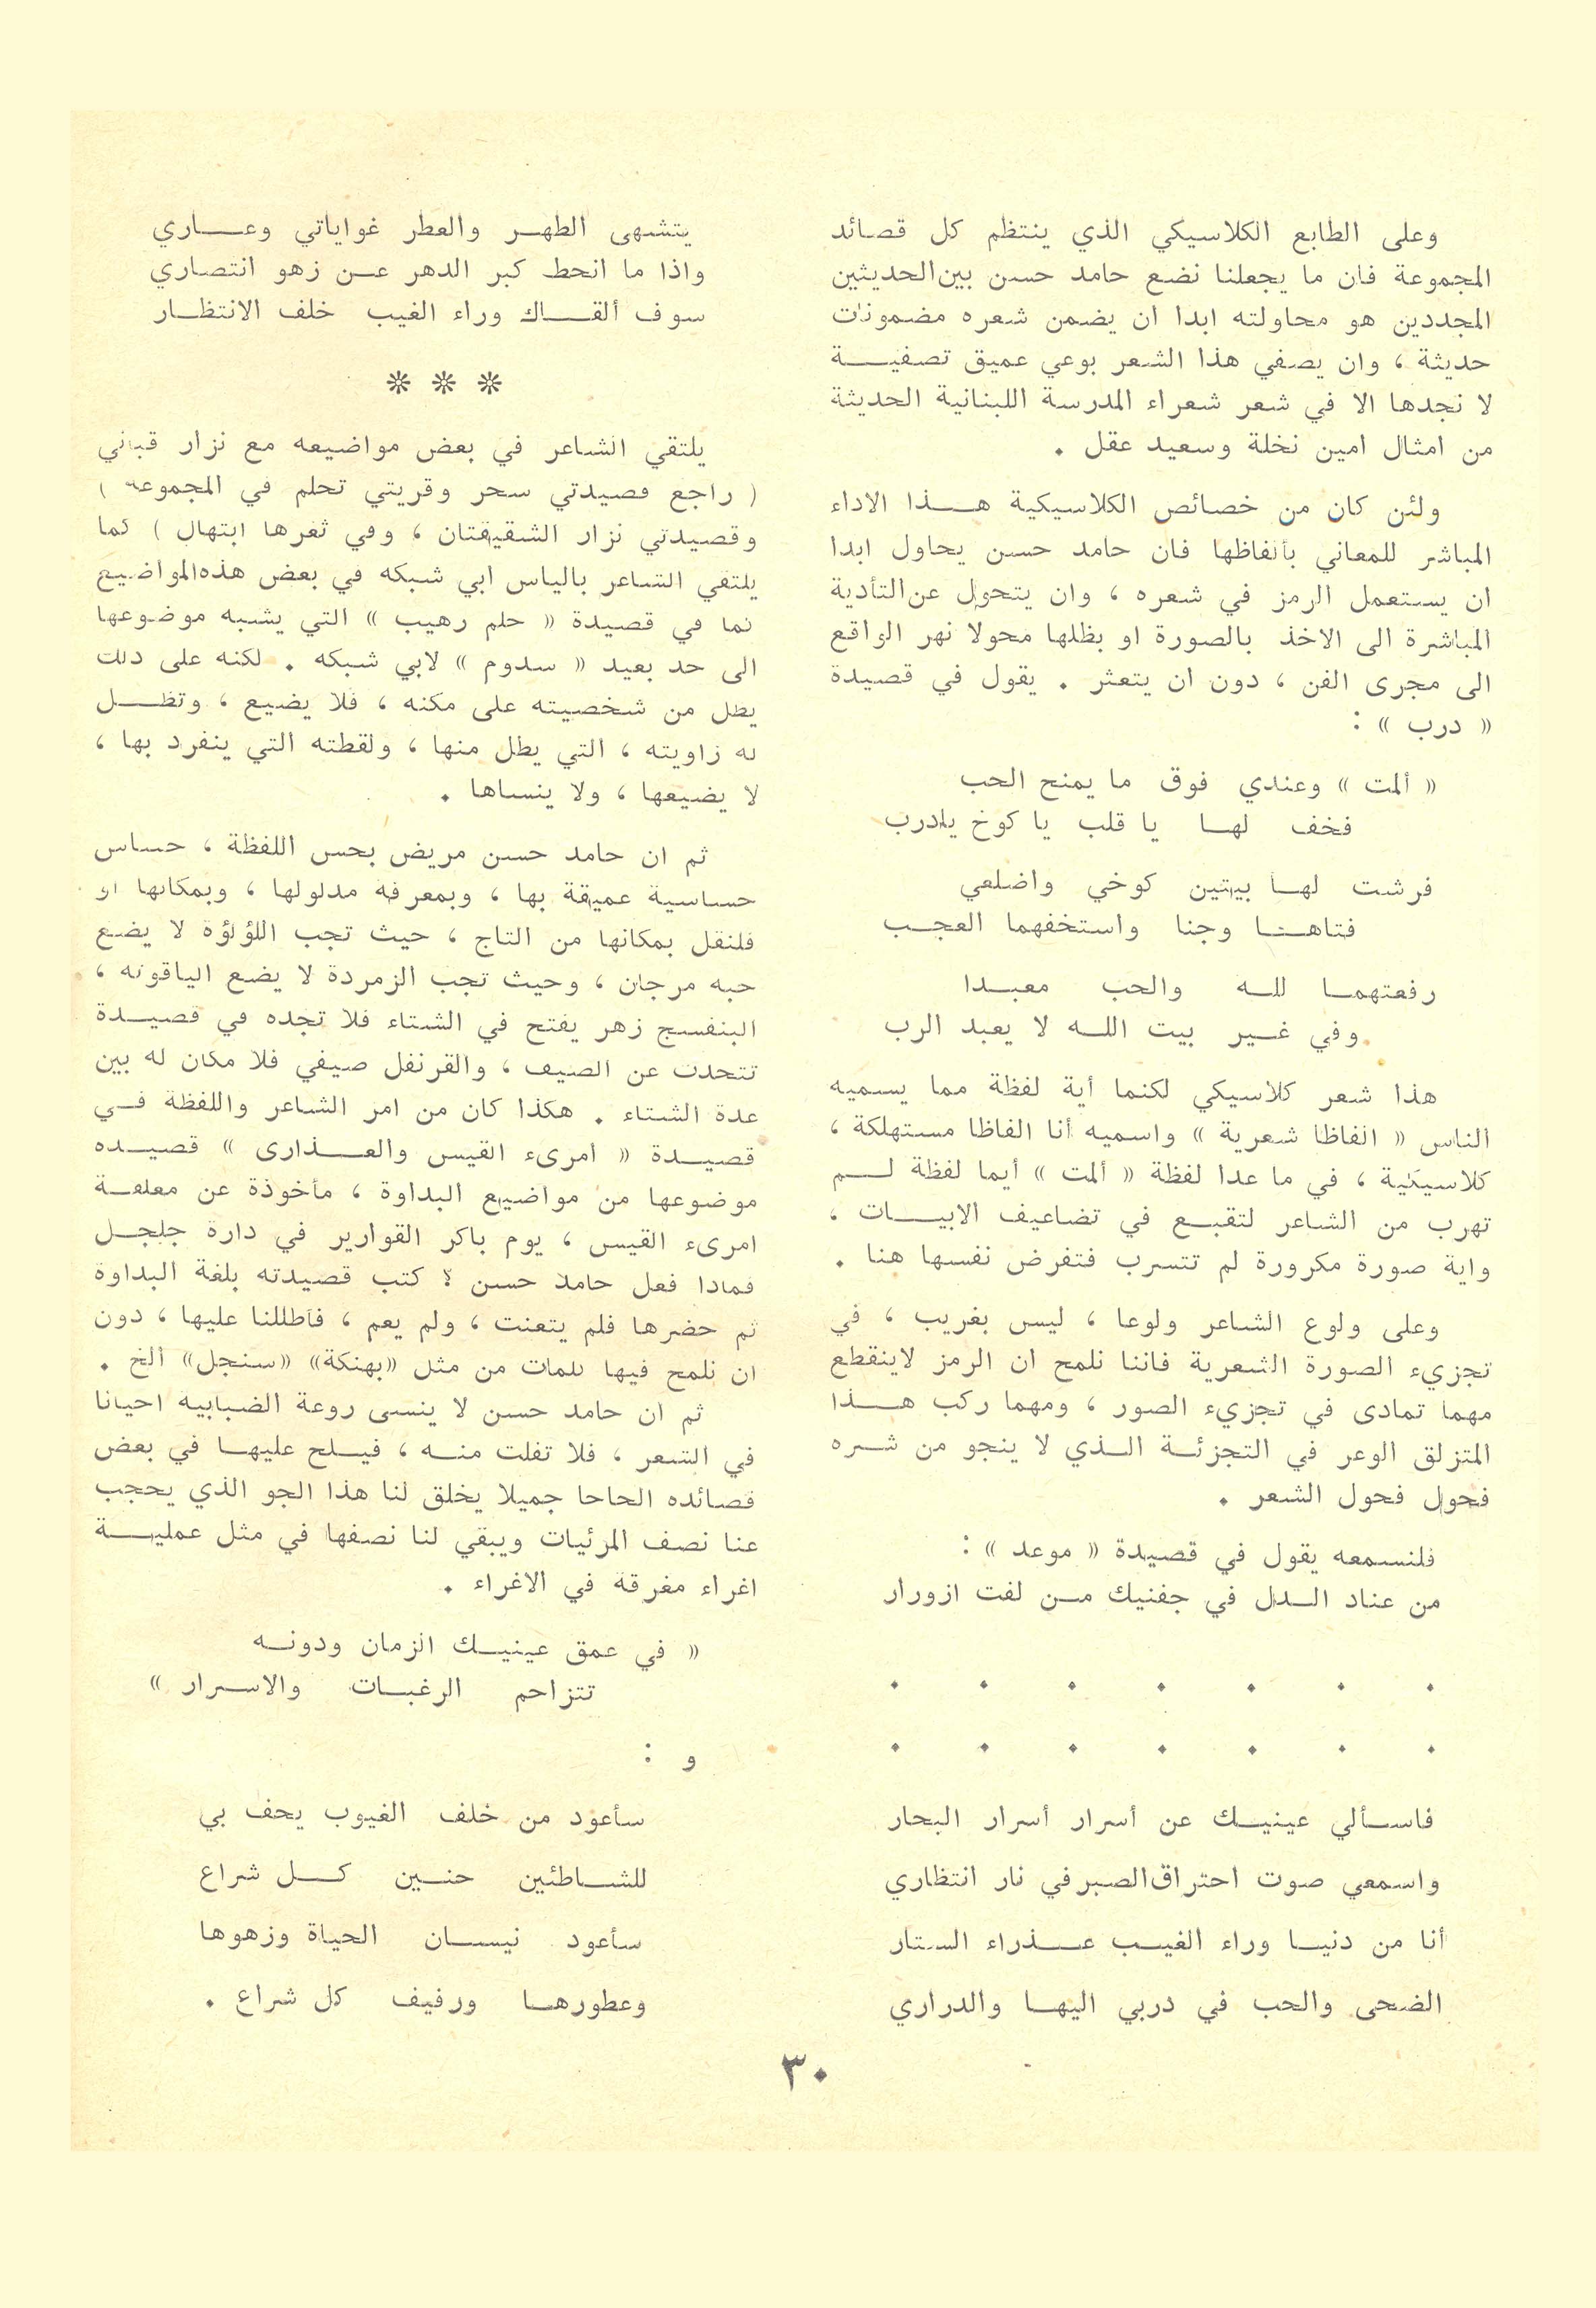 وعلى الطابع الكلاسيكي الذي ينتظم كل قصائد
المجموعة فان ما يجعلنا نضع حامد حسن بين الحديثين
المجددين هو محاولته ابدا ان يضمن شعره مضمونات
حديثة ، وان يصفي هذا الشعر بوعي عميق تصفيـــة
لا نجدها الا في شعر شعراء المدرسة اللبنانية الحديثة
من امثال امين نخلة وسعيد عقل .
ولئن كان من خصائص الكلاسيكية هـــذا الاداء
المباشر للمعاني بألفاظها فان حامد حسن يحاول ابدا
ان يستعمل الرمز في شعره ، وان يتحول عن التأدية
المباشرة الى الاخذ بالصورة او بظلها محولا نهر الواقع
الى مجرى الفن ، دون ان يتعثر . يقول في قصيدة
« درب » :
« ألمت » وعندي فوق ما يمنح الحب
فخف لهــا يا قلب يا كوخ يادرب
فرشت لهــا بيتين كوخي واضلعي
فتاهــا وجنا واستخفهما العجـب
رفعتهمــا للـه والحب معبــدا
وفي غــير بيت اللــه لا يعبد الرب
هذا شعر كلاسيكي لكنما أية لفظة مما يسميه
الناس « الفاظا شعرية » واسميه أنا الفاظا مستهلكة ،
كلاسيكية ، في ما عدا لفظة « ألمت » أيما لفظة لـــم
تهرب من الشاعر لتقبــع في تضاعيف الابيــات ،
واية صورة مكرورة لم تتسرب فتفرض نفسها هنا .
وعلى ولوع الشاعر ولوعا ، ليس بغريب ، في
تجزيء الصورة الشعرية فاننا نلمح ان الرمز لاينقطع
مهما تمادى في تجزيء الصور ، ومهما ركب هـــذا
المتزلق الوعر في التجزئــة الــذي لا ينجو من شــره
فحول فحول الشعر .
فلنسمعه يقول في قصيدة « موعد » :
من عناد الــدل في جفنيك مــن لفت ازورار
. . . . . . .
. . . . . . .
فاســألي عينيــك عن أسرار أسرار البحار
واسمعي صوت احتراق الصبر في نار انتظاري
أنا من دنيــا وراء الغيــب عــذراء الستار
الضحى والحب في دربي اليهــا والدراري
يتشهى الطهــر والعطر غواياتي وعـــاري
واذا ما انحط كبر الدهر عــن زهو انتصاري
سوف ألقـــاك وراء الغيب خلف الانتظــار
* * *
يلتقي الشاعر في بعض مواضيعه مع نزار قباني
( راجع قصيدتي سحر وقريتي تحلم في المجموعة )
وقصيدتي نزار الشقيقتان ، وفي ثغرها ابتهال ) كما
يلتقي الشاعر بالياس ابي شبكه في بعض هذه المواضيع
كما في قصيدة « حلم رهيب » التي يشبه موضوعها
الى حد بعيد « سدوم » لابي شبكه . لكنه على ذلك
يظل من شخصيته على مكنه ، فلا يضيع ، وتظـــل
له زاويته ، التي يطل منها ، ولقطته التي ينفرد بها ،
لا يضيعها ، ولا ينساها .
ثم ان حامد حسن مريض بحس اللفظة ، حساس
حساسية عميقة بها ، وبمعرفة مدلولها ، وبمكانها او
فلنقل بمكانها من التاج ، حيث تجب اللؤلؤة لا يضع
حبه مرجان ، وحيث تجب الزمردة لا يضع الياقوته ،
البنفسج زهر يفتح في الشتاء فلا تجده في قصيــدة
تتحدث عن الصيف ، والقرنفل صيفي فلا مكان له بين
عدة الشتاء . هكذا كان من امر الشاعر واللفظة فــي
قصيــدة « امرىء القيس والعــذارى » قصيــده
موضوعها من مواضيع البداوة ، مأخوذة عن معلقــة
امرىء القيس ، يوم باكر القوارير في دارة جلجــل
فماذا فعل حامد حسن ؟ كتب قصيدته بلغة البداوة
ثم حضرها فلم يتعنت ، ولم يعم ، فأطللنا عليها ، دون
ان نلمح فيها كلمات من مثل «بهنكة» «سنجل» الخ .
ثم ان حامد حسن لا ينسى روعة الضبابيه احيانا
في الشعر ، فلا تفلت منــه ، فيــلح عليهــا في بعض
قصائده الحاحا جميلا يخلق لنا هذا الجو الذي يحجب
عنا نصف المرئيات ويبقي لنا نصفها في مثل عمليــة
اغراء مغرقة في الاغراء .
« في عمق عينيــك الزمان ودونــه
تتزاحم الرغبــات والاســرار »
و :
سأعود من خلف الغيوب يحف بي
للشــاطئين حنــين كــل شراع
سأعود نيســان الحياة وزهوها
وعطورهــا ورفيف كل شراع .
٣٠